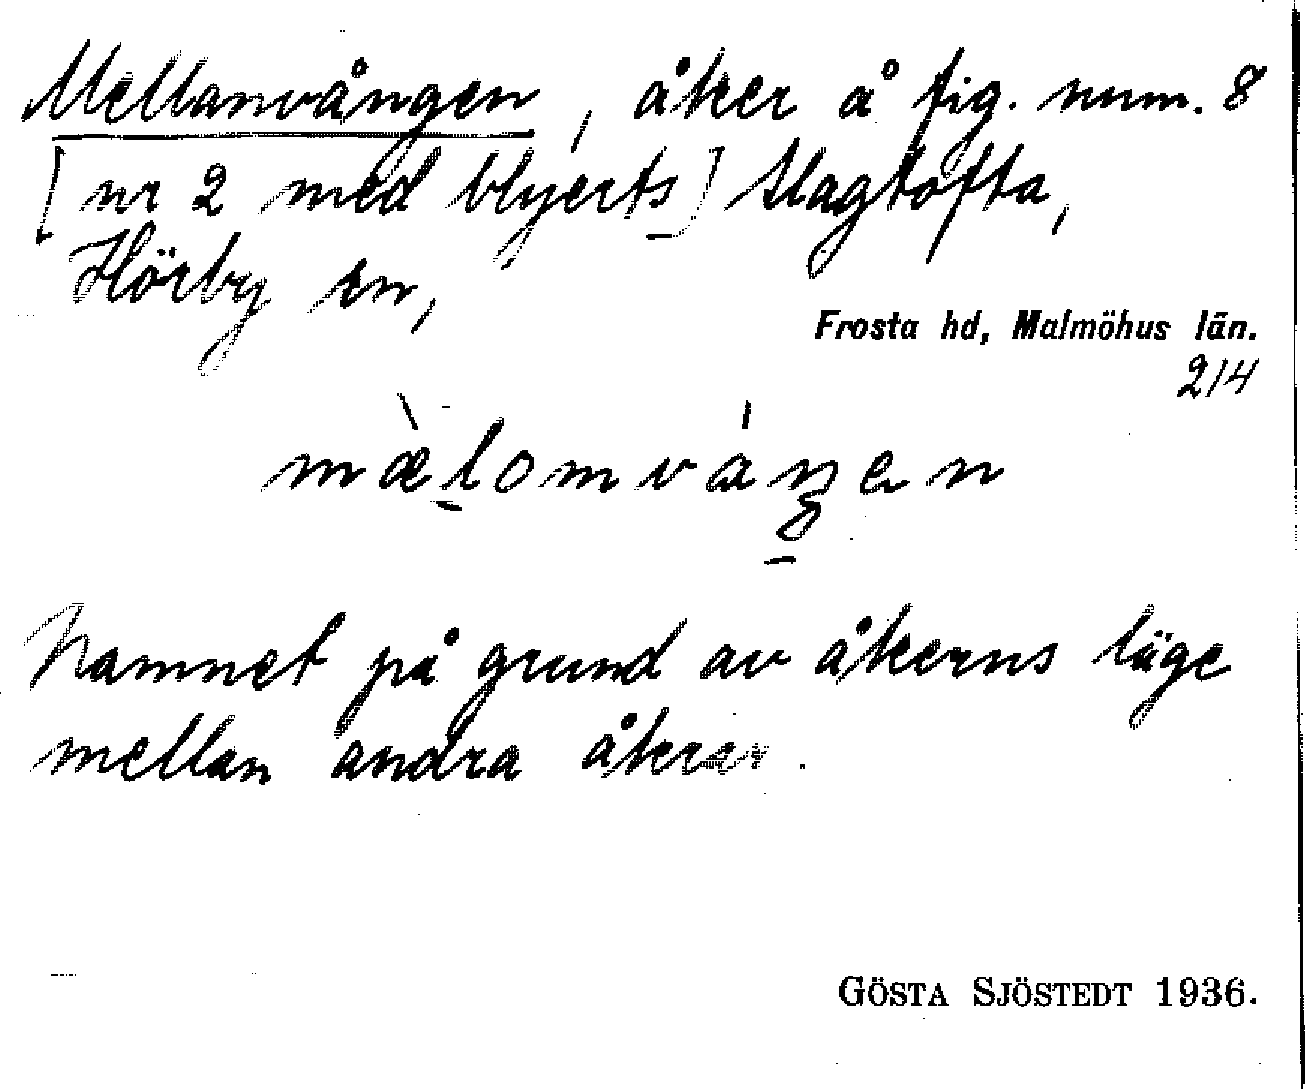 Mellanvången, åker å fig. num. 8
[nr 2 med blyerts] Slagtofta,
Hörby sn,
Frosta hd, Malmöhus län.
214
mæ̀lomváŋen
Namnet på grund av åkerns läge
mellan andra åkrar.
GÖSTA SJÖSTEDT 1936.